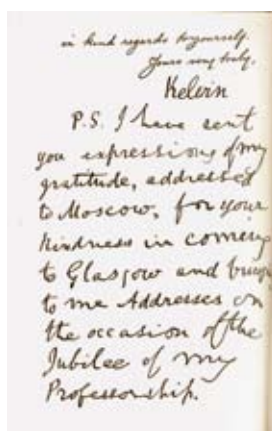 in kind regards to yourself.
Yours very truly,
Kelvin
P.S. I have sent
you expressions of my
gratitude, addressed
to Moscow, for your
kindness in coming
to Glasgow and bring
to me Addresses on
the occasion of the
Jubilee of my
Professorship.